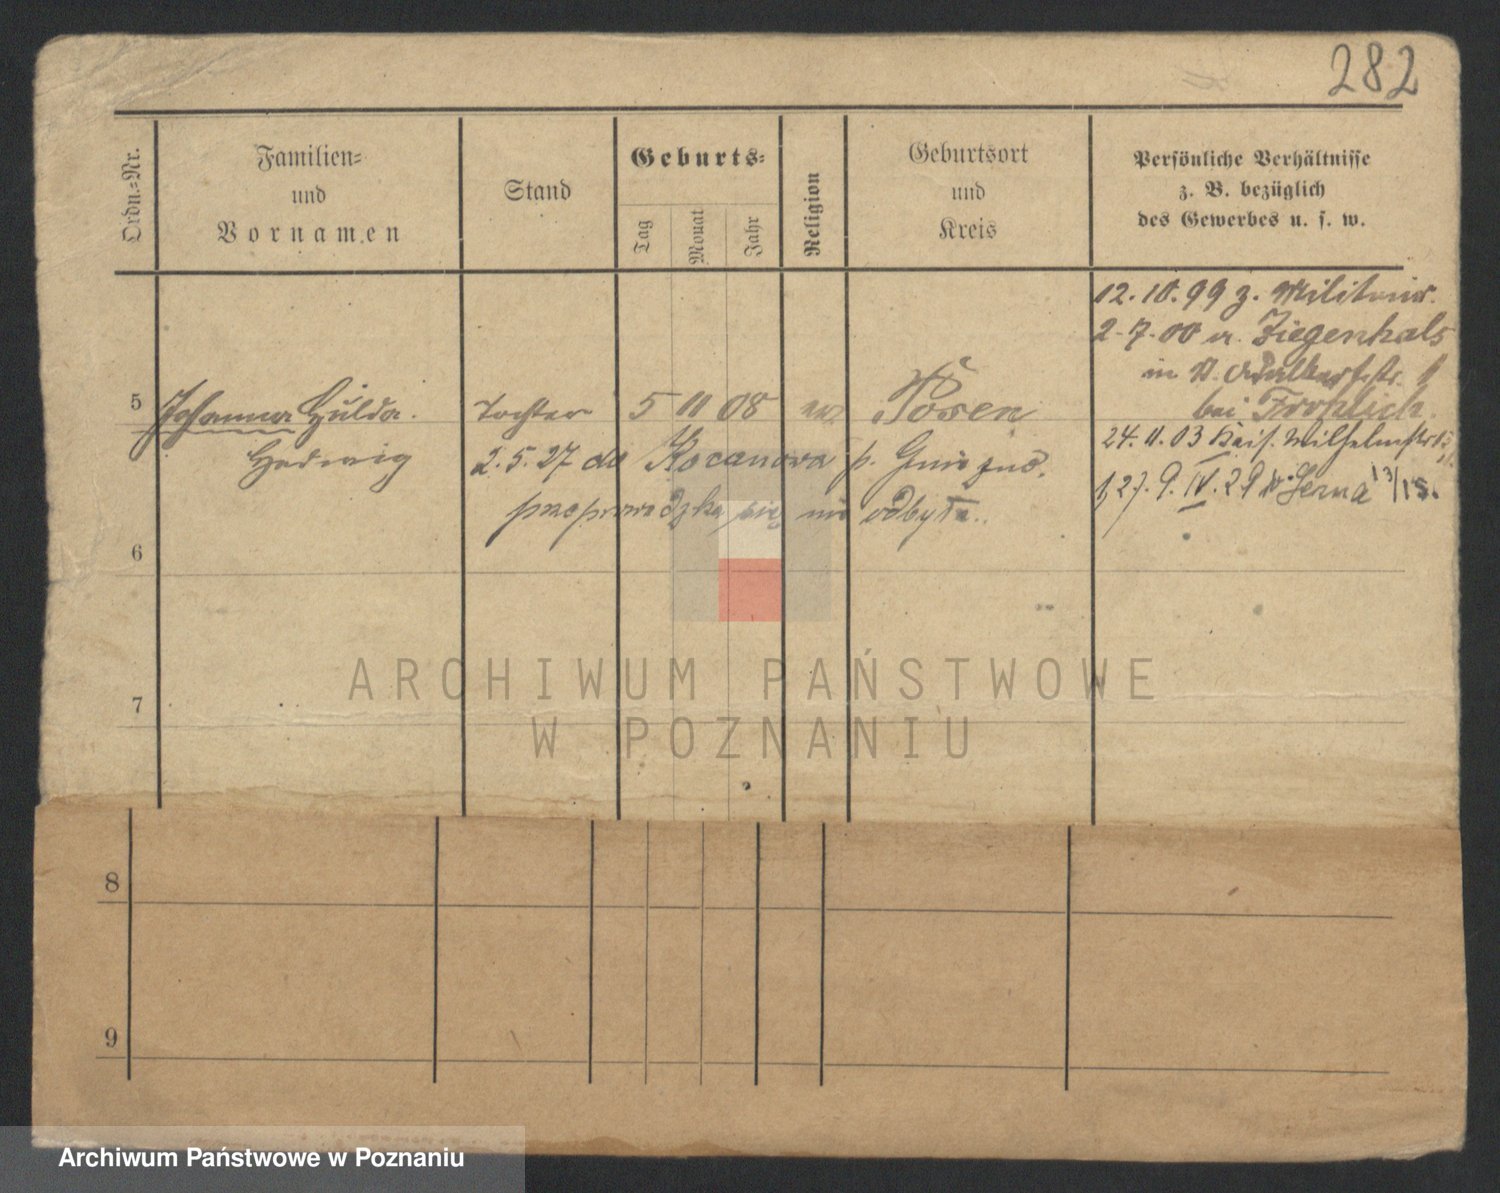 282
Ordn.-Nr.
Familien-
und
Vornamen
Stand
Geburts-
Tag
Monat
Jahr
Religion
Geburtsort
und
Kreis
Persönliche Verhältnisse
z. B. bezüglich
des Gewerbes u. s. w.
12.10.99 z. Militair.
2.7.00 a. Ziegenhals
in St. Adalbertstr.
bei Frohlich.
5 Johanna Hulda. Tochter 5 11 08 ev. Posen
24.11.03 Kais. Wilhelmstr
Hedwig 2.5.27 do Kocanowa p. Gniezno.
27.9.IV.29 13/15.
przeprowadzka się nie odbyła.
6
7
8
9
ARCHIWUM PAŃSTWOWE
W POZNANIU
Archiwum Państwowe w Poznaniu